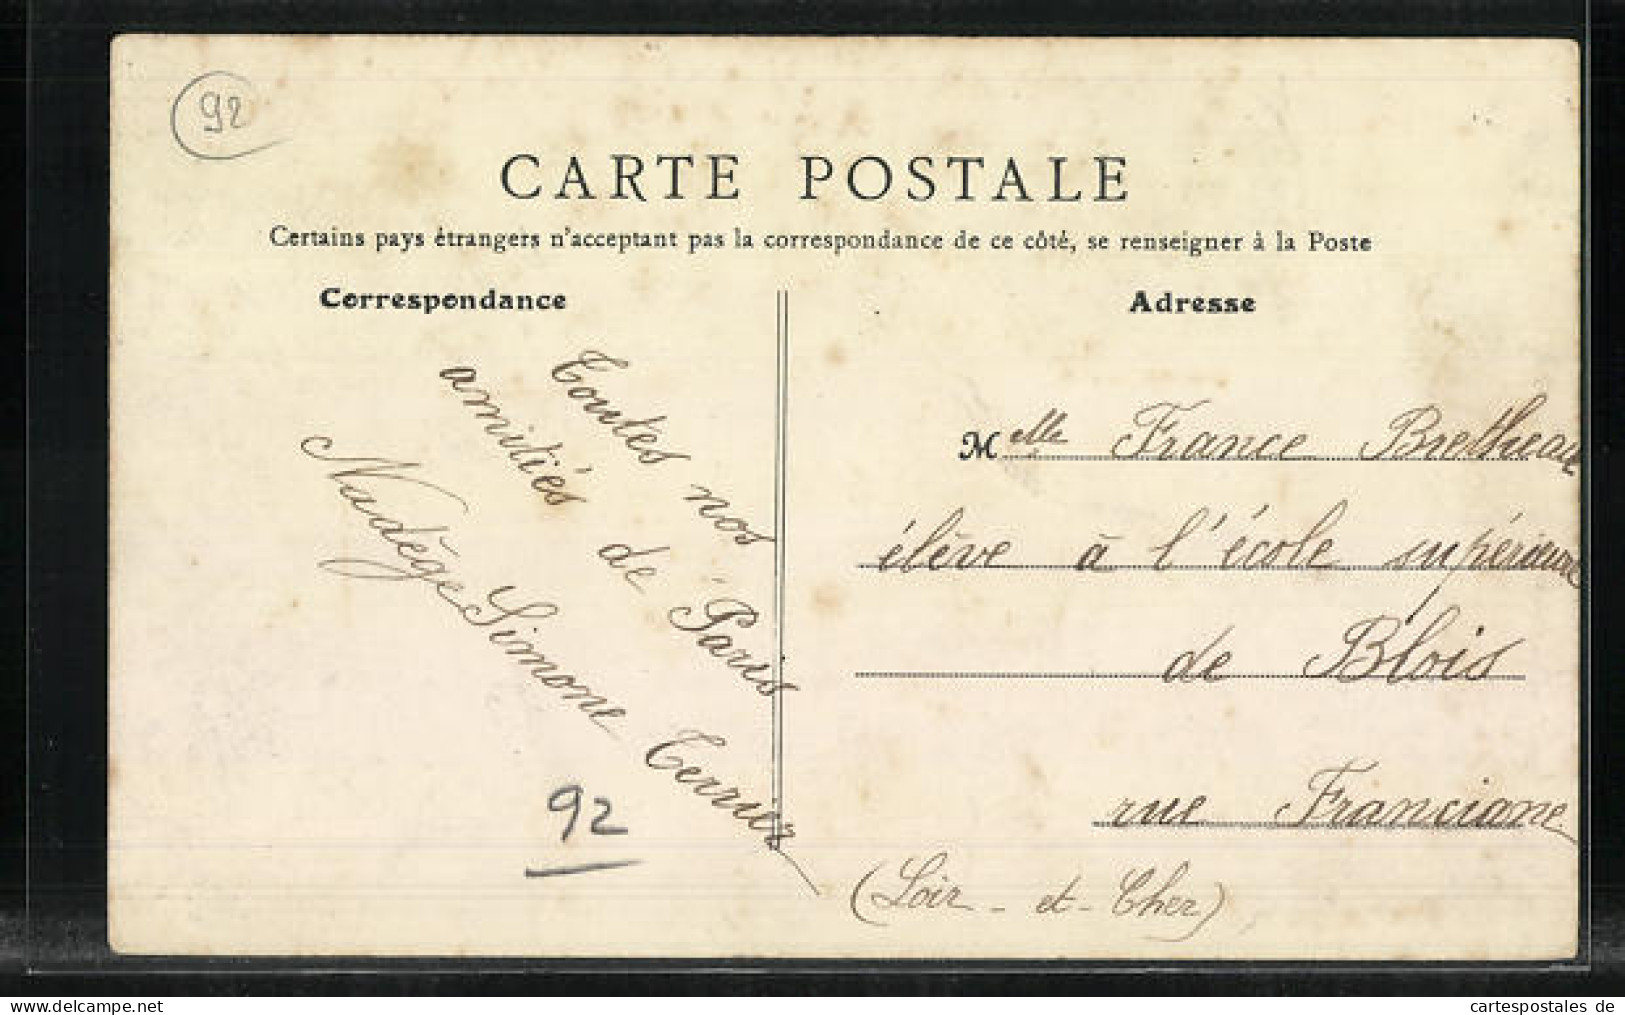 92
CARTE POSTALE
Certains pays étrangers n'acceptent pas la correspondance de ce côté, se renseigner à la Poste
Correspondance
Toutes nos
amitiés de Paris
Nadège Simone Terrier
92
Adresse
Melle France Bretheau
élève à l'école supérieure
de Blois
rue Franciane
(Loir-et-Cher)
delcampe.net
cartespostales de